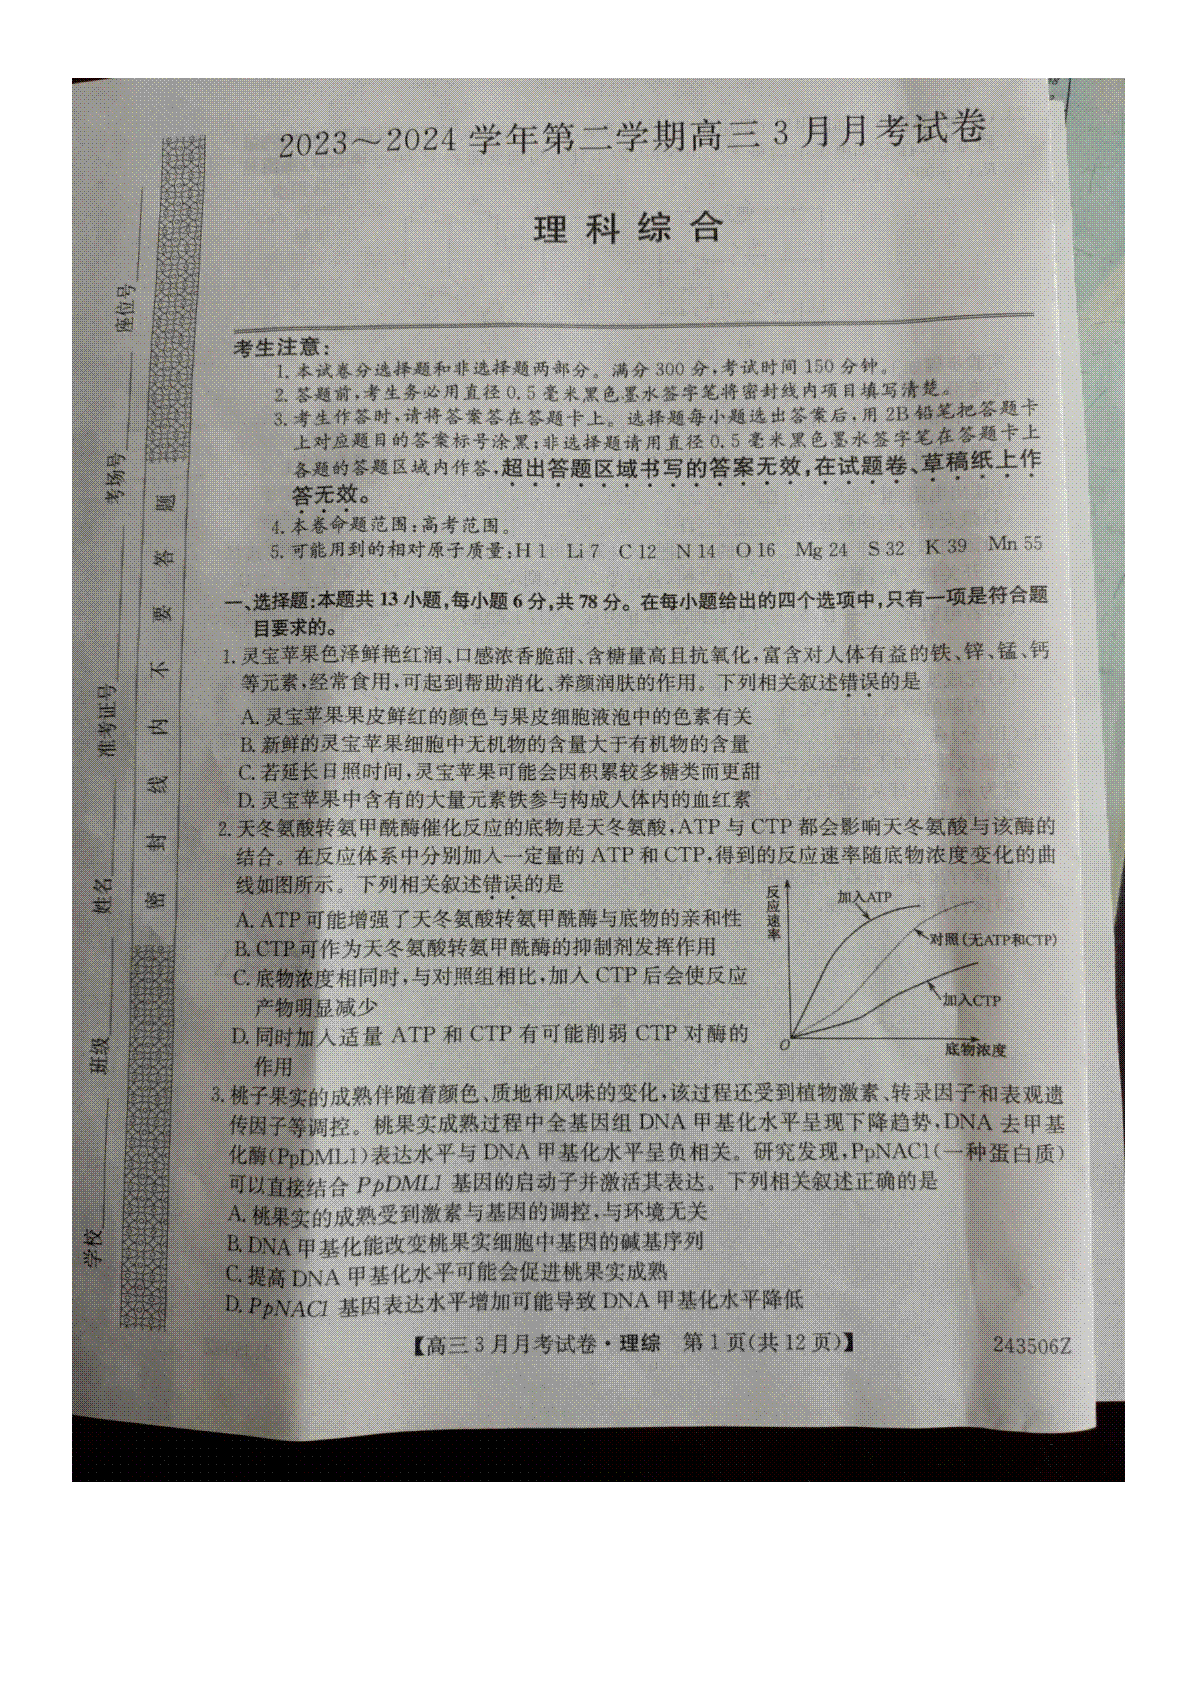 2023～2024学年第二学期高三3月月考试卷
理科综合
考生注意：
1.本试卷分选择题和非选择题两部分。满分300分,考试时间150分钟。
2.答题前,考生务必用直径0.5毫米黑色墨水签字笔将密封线内项目填写清楚。
3.考生作答时,请将答案答在答题卡上。选择题每小题选出答案后,用2B铅笔把答题卡
上对应题目的答案标号涂黑;非选择题请用直径0.5毫米黑色墨水签字笔在答题卡上
各题的答题区域内作答,超出答题区域书写的答案无效,在试题卷、草稿纸上作
答无效。
4.本卷命题范围:高考范围。
5.可能用到的相对原子质量:H 1 Li 7 C 12 N 14 O 16 Mg 24 S 32 K 39 Mn 55
一、选择题:本题共13小题,每小题6分,共78分。在每小题给出的四个选项中,只有一项是符合题
目要求的。
1.灵宝苹果色泽鲜艳红润、口感浓香脆甜、含糖量高且抗氧化,富含对人体有益的铁、锌、锰、钙
等元素,经常食用,可起到帮助消化、养颜润肤的作用。下列相关叙述错误的是
A.灵宝苹果果皮鲜红的颜色与果皮细胞液泡中的色素有关
B.新鲜的灵宝苹果细胞中无机物的含量大于有机物的含量
C.若延长日照时间,灵宝苹果可能会因积累较多糖类而更甜
D.灵宝苹果中含有的大量元素铁参与构成人体内的血红素
2.天冬氨酸转氨甲酰酶催化反应的底物是天冬氨酸,ATP与CTP都会影响天冬氨酸与该酶的
结合。在反应体系中分别加入一定量的ATP和CTP,得到的反应速率随底物浓度变化的曲
线如图所示。下列相关叙述错误的是
A.ATP可能增强了天冬氨酸转氨甲酰酶与底物的亲和性
B.CTP可作为天冬氨酸转氨甲酰酶的抑制剂发挥作用
C.底物浓度相同时,与对照组相比,加入CTP后会使反应
产物明显减少
D.同时加入适量ATP和CTP有可能削弱CTP对酶的
作用
反应速率
加入ATP
对照(无ATP和CTP)
加入CTP
O
底物浓度
3.桃子果实的成熟伴随着颜色、质地和风味的变化,该过程还受到植物激素、转录因子和表观遗
传因子等调控。桃果实成熟过程中全基因组DNA甲基化水平呈现下降趋势,DNA去甲基
化酶(PpDML1)表达水平与DNA甲基化水平呈负相关。研究发现,PpNAC1(一种蛋白质)
可以直接结合PpDML1基因的启动子并激活其表达。下列相关叙述正确的是
A.桃果实的成熟受到激素与基因的调控,与环境无关
B.DNA甲基化能改变桃果实细胞中基因的碱基序列
C.提高DNA甲基化水平可能会促进桃果实成熟
D.PpNAC1基因表达水平增加可能导致DNA甲基化水平降低
【高三3月月考试卷·理综 第1页(共12页)】
243506Z
学校
班级
姓名
准考证号
考场号
座位号
密封线内不要答题